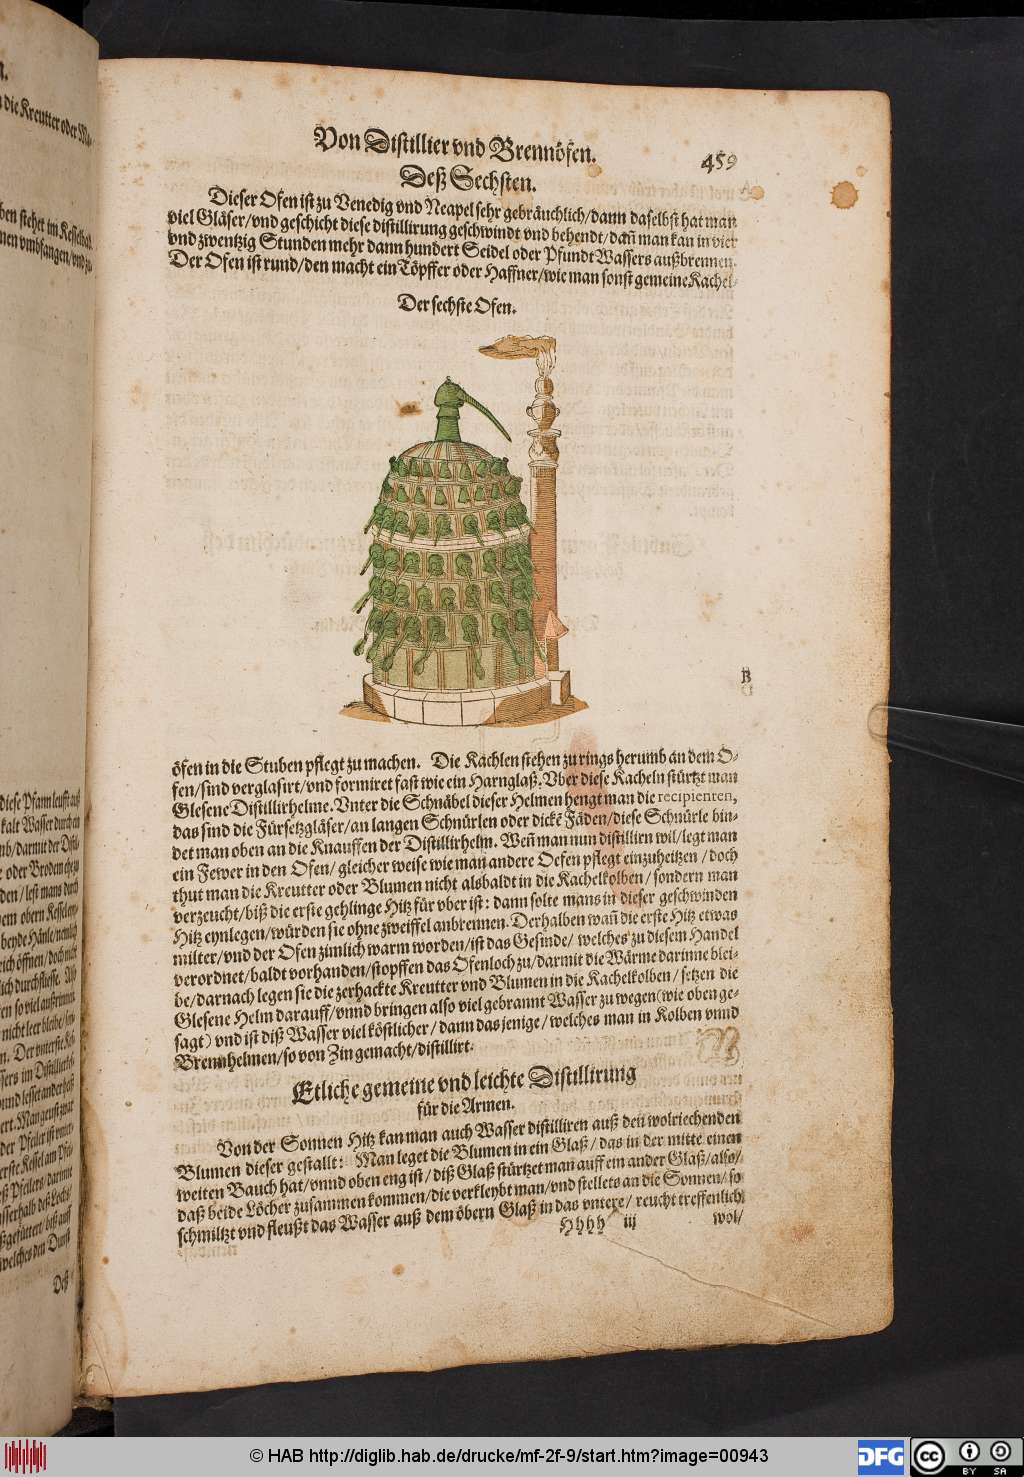 Von Distillier vnd Brennöfen.
459
Deß Sechsten.
Dieser Ofen ist zu Venedig vnd Neapel sehr gebräuchlich/dann daselbst hat man
viel Gläser/vnd geschicht diese distillirung geschwindt vnd behendt/dañ man kan in vier
vnd zwentzig Stunden mehr dann hundert Seidel oder Pfundt Wassers außbrennen.
Der Ofen ist rund/den macht ein Töpffer oder Haffner/wie man sonst gemeine Kachel-
Der sechste Ofen.
B
öfen in die Stuben pflegt zu machen. Die Kachlen stehen zu rings herumb an dem O-
fen/sind verglasirt/vnd formiret fast wie ein Harnglaß. Vber diese Kacheln stürtzt man
Glesene Distillirhelme. Vnter die Schnäbel dieser Helmen hengt man die recipienten,
das sind die Fürsetzgläser/an langen Schnürlen oder dickẽ Fäden/diese Schnürle bin-
det man oben an die Knauffen der Distillirhelm. Weñ man nun distillirn wil/legt man
ein Fewer in den Ofen/gleicher weise wie man andere Oefen pflegt einzuheitzen/doch
thut man die Kreutter oder Blumen nicht alsbaldt in die Kachelkolben/sondern man
verzeucht/biß die erste gehlinge Hitz für vber ist: dann solte mans in dieser geschwinden
Hitz eynlegen/würden sie ohne zweiffel anbrennen. Derhalben wañ die erste Hitz etwas
milter/vnd der Ofen zimlich warm worden/ist das Gesinde/welches zu diesem Handel
verordnet/baldt vorhanden/stopffen das Ofenloch zu/darmit die Wärme darinne blei-
be/darnach legen sie die zerhackte Kreutter vnd Blumen in die Kachelkolben/setzen die
Glesene Helm darauff/vnnd bringen also viel gebrannt Wasser zu wegen (wie oben ge-
sagt) vnd ist diß Wasser viel köstlicher/dann das jenige/welches man in Kolben vnnd
Brennhelmen/so von Zin gemacht/distillirt.
Etliche gemeine vnd leichte Distillirung
für die Armen.
Von der Sonnen Hitz kan man auch Wasser distilliren auß den wolriechenden
Blumen dieser gestallt: Man leget die Blumen in ein Glaß/das in der mitte einen
weiten Bauch hat/vnnd oben eng ist/diß Glaß stürtzet man auff ein ander Glaß/also/
daß beide Löcher zusammen kommen/die verkleybt man/vnd stellets an die Sonnen/so
schmiltzt vnd fleußt das Wasser auß dem öbern Glaß in das vntere/reucht treffenlich
Hhhh iij
wol/
die Kreutter oder
kalt Wasser durch ein
Deß
© HAB http://diglib.hab.de/drucke/mf-2f-9/start.htm?image=00943
DFG
cc
BY SA